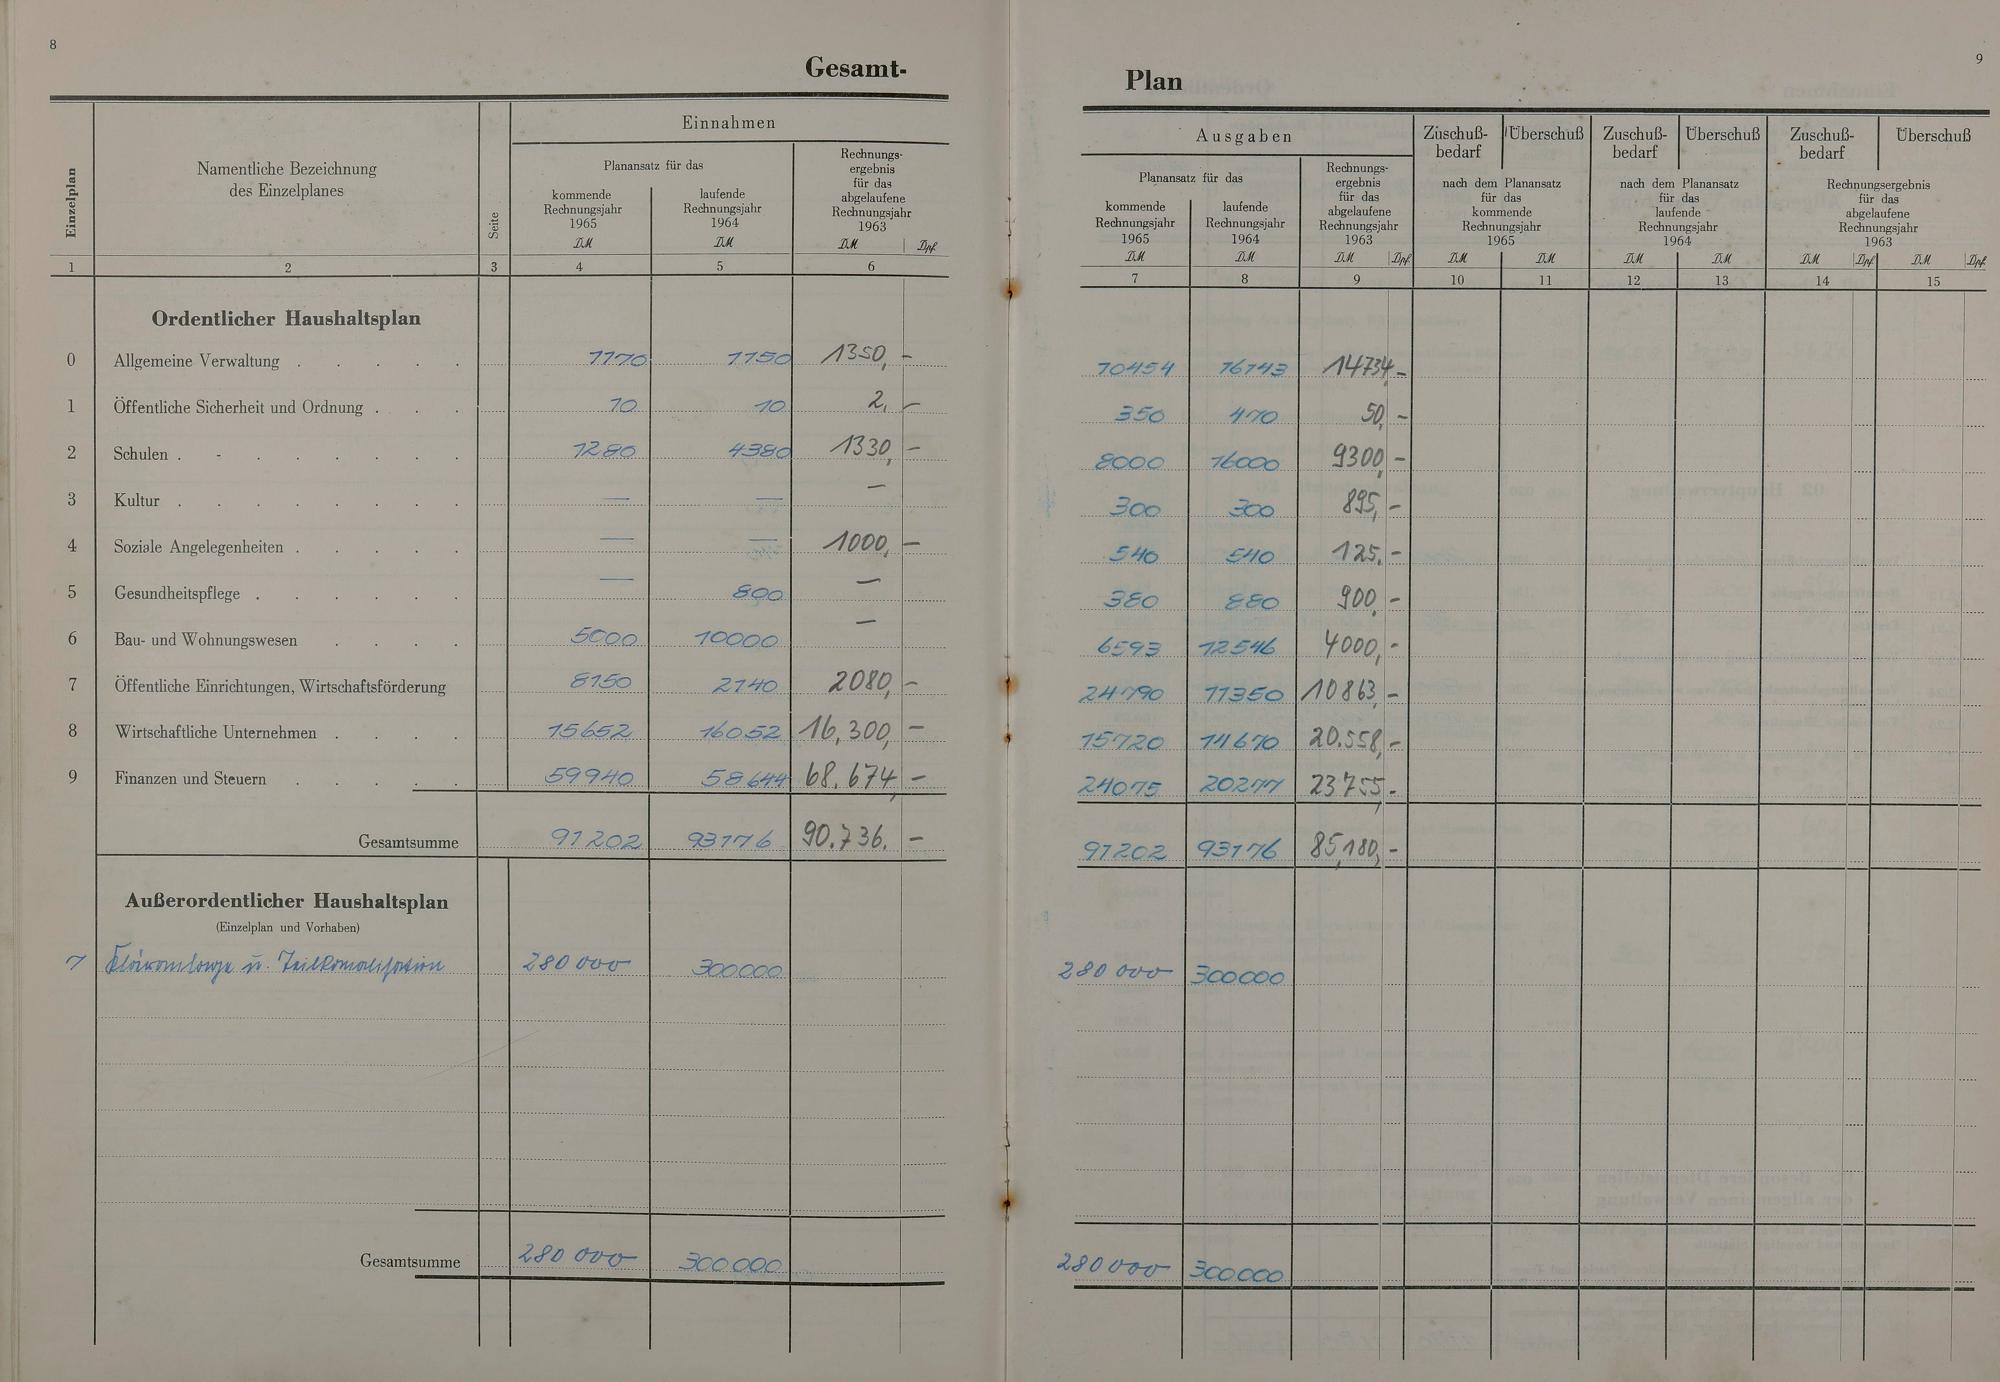 8
Gesamt-
Einzelplan
Namentliche Bezeichnung
des Einzelplanes
Seite
Einnahmen
Planansatz für das
kommende
Rechnungsjahr
1965
DM
laufende
Rechnungsjahr
1964
DM
Rechnungs-
ergebnis
für das
abgelaufene
Rechnungsjahr
1963
DM Dpf
1 2 3 4 5 6
Ordentlicher Haushaltsplan
0 Allgemeine Verwaltung . . . . . 1170 1150 1350,-
1 Öffentliche Sicherheit und Ordnung . . . 10 10 2,-
2 Schulen . - . . . . . . 1280 4380 1330,-
3 Kultur . . . . . . . . — — —
4 Soziale Angelegenheiten . . . . . — — 1000,-
5 Gesundheitspflege . . . . . . — 800 —
6 Bau- und Wohnungswesen . . . . 5000 10000 —
7 Öffentliche Einrichtungen, Wirtschaftsförderung 8150 2140 2080,-
8 Wirtschaftliche Unternehmen . . . . 15652 16052 16,300,-
9 Finanzen und Steuern . . . . . 59940 58644 68.674,-
Gesamtsumme 91202 93176 90.736.-
Außerordentlicher Haushaltsplan
(Einzelplan und Vorhaben)
7 Kläranlage u. Teilkanalisation 280 000 300000
Gesamtsumme 280 000 300 000
9
Plan
Ausgaben
Planansatz für das
kommende
Rechnungsjahr
1965
DM
laufende
Rechnungsjahr
1964
DM
Rechnungs-
ergebnis
für das
abgelaufene
Rechnungsjahr
1963
DM Dpf
Zuschuß-
bedarf
Überschuß
nach dem Planansatz
für das
kommende
Rechnungsjahr
1965
DM DM
Zuschuß-
bedarf
Überschuß
nach dem Planansatz
für das
laufende
Rechnungsjahr
1964
DM DM
Zuschuß-
bedarf
Überschuß
Rechnungsergebnis
für das
abgelaufene
Rechnungsjahr
1963
DM Dpf DM Dpf
7 8 9 10 11 12 13 14 15
10454 16143 14734-
350 470 50,-
8000 16000 9300,-
300 300 895,-
540 540 125,-
380 880 900,-
6593 12546 4000,-
24790 11350 10863,-
15720 14670 20.558,-
24075 20277 23755,-
91202 93176 85,180,-
280 000 300000
280 000 300000